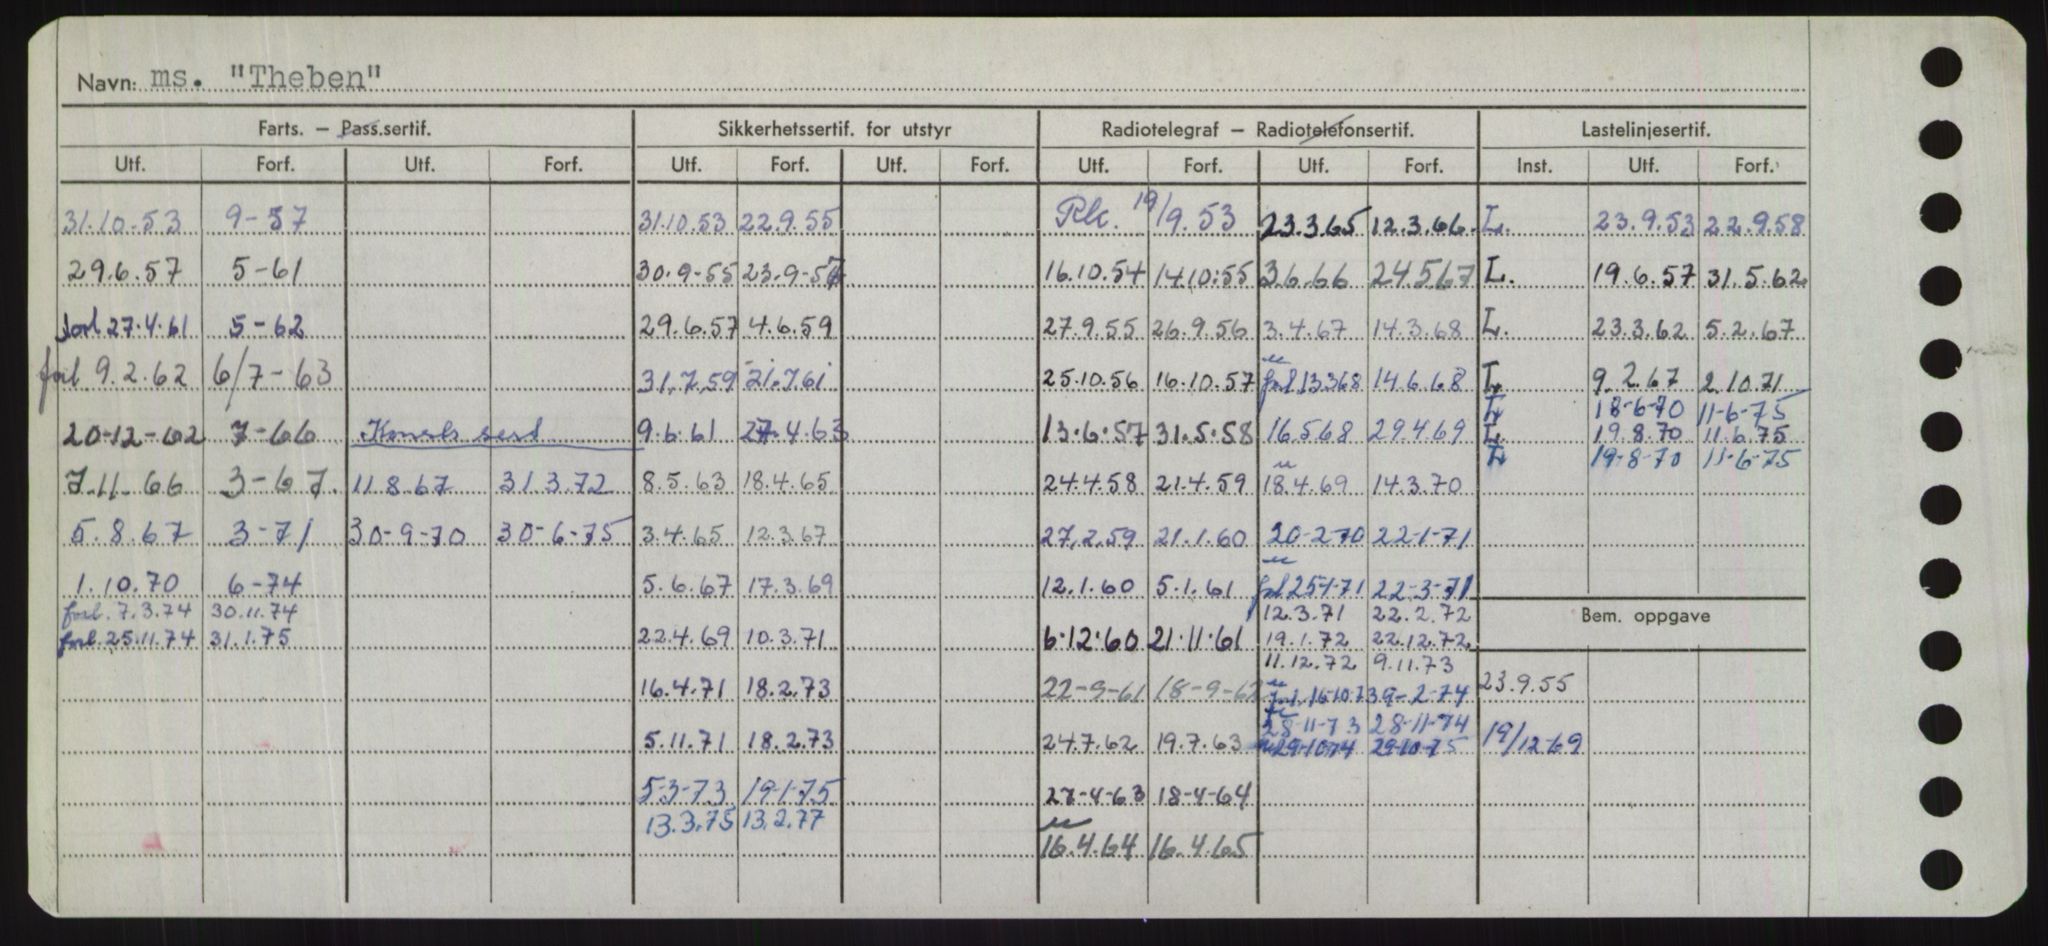 Navn: ms. "Theben"
Farts. — Pass.sertif. Sikkerhetssertif. for utstyr Radiotelegraf — Radiotelefonsertif. Lastelinjesertif.
Utf. Forf. Utf. Forf. Utf. Forf. Utf. Forf. Utf. Forf. Utf. Forf. Inst. Utf. Forf.
31.10.53 9-57 31.10.53 22.9.55 19/9.53 23.3.65 12.3.66. L. 23.9.53 22.9.58
29.6.57 5-61 30.9-55 23.9-57 16.10.54 14.10.55 3.6.66 24.5.67 L. 19.6.57 31.5.62
forl 27.4.61 5-62 29.6.57 4.6.59 27.9.55 26.9.56 3.4.67 14.3.68 L. 23.3.62 5.2.67
forl 9.2.62 6/7-63 31.7.59 21.7.61 25.10.56 16.10.57 forl 13.3.68 14.6.68 L. 9.2.67 2.10.71
L. 18-6-70 11-6-75
20-12-62 7-66 Konst. sert 9.6.61 27.4.63 13.6.57 31.5.58 16.5.68 29.4.69 L. 19.8.70 11.6.75
L 19-8-70 11-6-75
7.11.66 3-67. 11.8.67 31.3.72 8.5.63 18.4.65 24.4.58 21.4.59 18.4.69 14.3.70
5.8.67 3-71 30-9-70 30-6-75 3.4.65 12.3.67 27.2.59 21.1.60 20-2-70 22-1-71
1.10.70 6-74 5.6.67 17.3.69 12.1.60 5.1.61 forl 25-1-71 22-3-71
forl. 7.3.74 30.11.74 12.3.71 22.2.72 Bem. oppgave
forl. 25.11.74 31.1.75 22.4.69 10.3.71 6.12.60 21.11.61 19.1.72 22.12.72
11.12.72 9.11.73
16.4.71 18.2.73 22-9-61 18-9-62 forl. 16-10-73 9-2-74 23.9.55
28-11-73 28-11-74
5.11.71 18.2.73 24.7.62 19.7.63 29-10-74 29-10-75 19/12-69
5-3-73 19-1-75 27-4-63 18-4-64
13.3.75 13.2.77
16.4.64 16.4.65